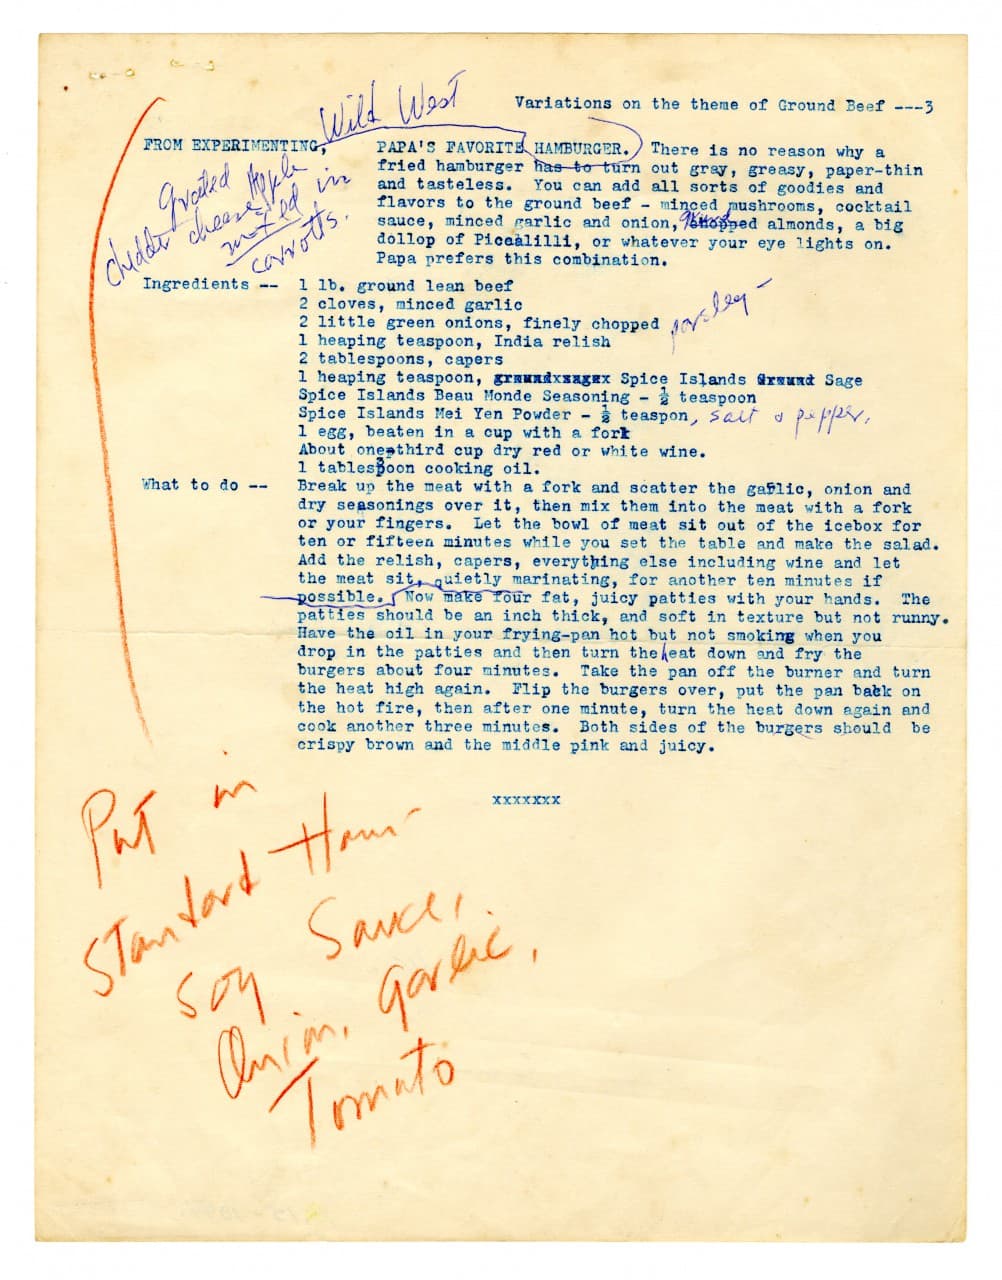 Variations on the theme of Ground Beef ---3
Wild West
FROM EXPERIMENTING, PAPA'S FAVORITE HAMBURGER. There is no reason why a
fried hamburger has to turn out gray, greasy, paper-thin
and tasteless. You can add all sorts of goodies and
flavors to the ground beef - minced mushrooms, cocktail
sauce, minced garlic and onion, ground chopped almonds, a big
dollop of Piccalilli, or whatever your eye lights on.
Papa prefers this combination.
grated Apple
chedder cheese
in
carrotts.
Ingredients -- 1 lb. ground lean beef
2 cloves, minced garlic
2 little green onions, finely chopped parsley -
1 heaping teaspoon, India relish
2 tablespoons, capers
1 heaping teaspoon, Spice Islands Sage
Spice Islands Beau Monde Seasoning - ½ teaspoon
Spice Islands Mei Yen Powder - ½ teaspon, salt & pepper,
1 egg, beaten in a cup with a fork
About one-third cup dry red or white wine.
1 tablespoon cooking oil.
What to do -- Break up the meat with a fork and scatter the garlic, onion and
dry seasonings over it, then mix them into the meat with a fork
or your fingers. Let the bowl of meat sit out of the icebox for
ten or fifteen minutes while you set the table and make the salad.
Add the relish, capers, everything else including wine and let
the meat sit, quietly marinating, for another ten minutes if
possible. Now make four fat, juicy patties with your hands. The
patties should be an inch thick, and soft in texture but not runny.
Have the oil in your frying-pan hot but not smoking when you
drop in the patties and then turn the heat down and fry the
burgers about four minutes. Take the pan off the burner and turn
the heat high again. Flip the burgers over, put the pan back on
the hot fire, then after one minute, turn the heat down again and
cook another three minutes. Both sides of the burgers should be
crispy brown and the middle pink and juicy.
xxxxxxx
Put in
Standard Ham-
Soy Sauce,
Onion, Garlic,
Tomato